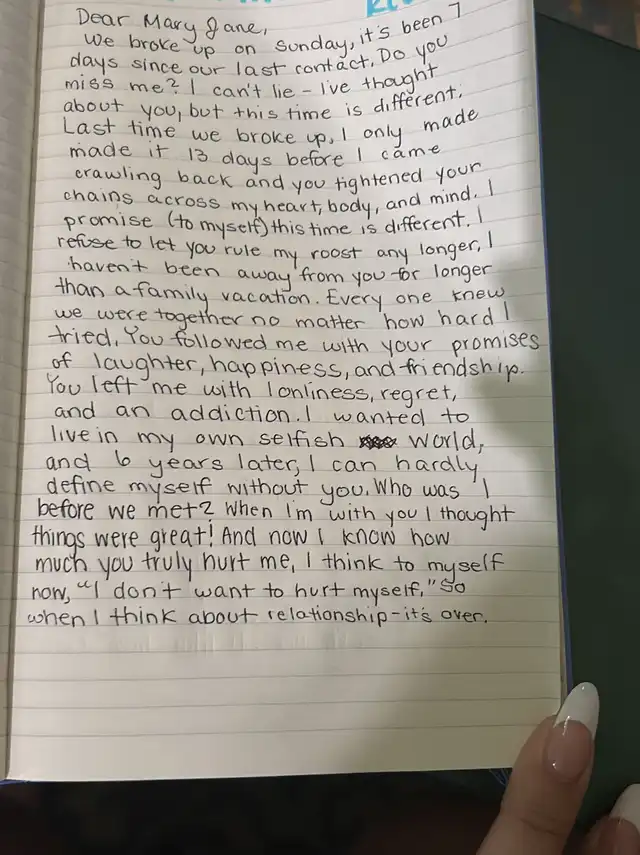 Dear Mary Jane,
We broke up on Sunday, it's been 7
days since our last contact. Do you
miss me? I can't lie - I've thought
about you, but this time is different.
Last time we broke up, I only made
made it 13 days before I came
crawling back and you tightened your
chains across my heart, body, and mind. I
promise (to myself) this time is different. I
refuse to let you rule my roost any longer, I
haven't been away from you for longer
than a family vacation. Every one knew
we were together no matter how hard I
tried. You followed me with your promises
of laughter, happiness, and friendship.
You left me with lonliness, regret,
and an addiction. I wanted to
live in my own selfish world,
and 6 years later, I can hardly
define myself without you. Who was I
before we met? When I'm with you I thought
things were great! And now I know how
much you truly hurt me, I think to myself
now, "I don't want to hurt myself," So
when I think about relationship - it's over.